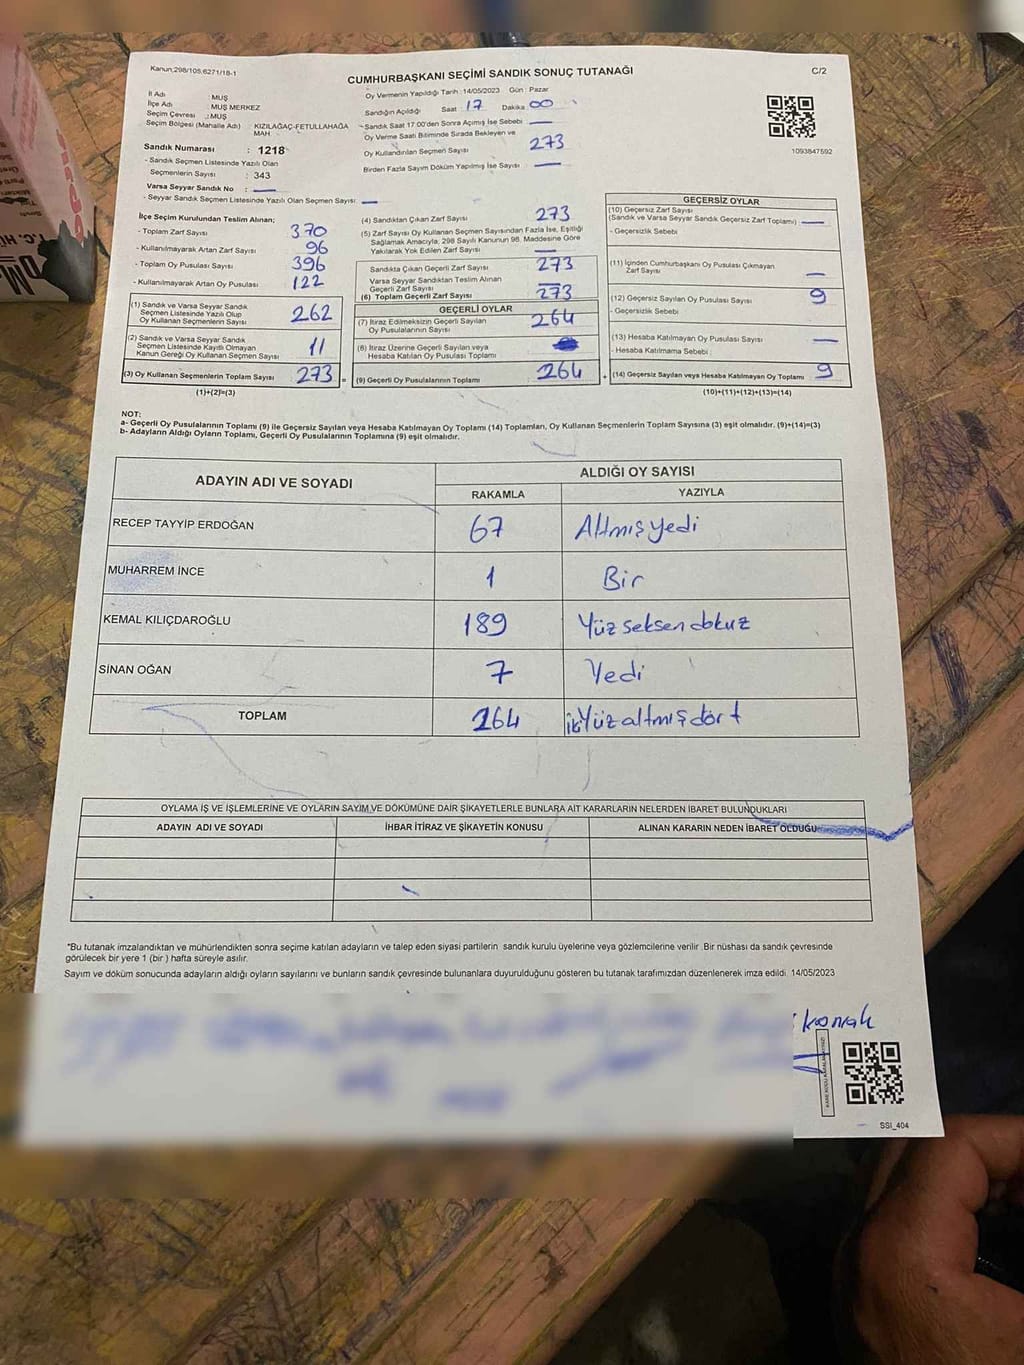 Kanun;298/105,6271/18-1
CUMHURBAŞKANI SEÇİMİ SANDIK SONUÇ TUTANAĞI
C/2
İl Adı : MUŞ
İlçe Adı : MUŞ MERKEZ
Seçim Çevresi : MUŞ
Seçim Bölgesi (Mahalle Adı) : KIZILAĞAÇ-FETULLAHAĞA MAH
Sandık Numarası : 1218
- Sandık Seçmen Listesinde Yazılı Olan
Seçmenlerin Sayısı : 343
Varsa Seyyar Sandık No :
- Seyyar Sandık Seçmen Listesinde Yazılı Olan Seçmen Sayısı :
Oy Vermenin Yapıldığı Tarih : 14/05/2023 Gün : Pazar
Sandığın Açıldığı Saat : 17 Dakika : 00
- Sandık Saat 17:00'den Sonra Açımış İse Sebebi
Oy Verme Saati Bitiminde Sırada Bekleyen ve
Oy Kullandırılan Seçmen Sayısı : 273
Birden Fazla Sayım Döküm Yapılmış İse Sayısı :
1093847592
İlçe Seçim Kurulundan Teslim Alınan;
- Toplam Zarf Sayısı : 370
- Kullanılmayarak Artan Zarf Sayısı : 96
- Toplam Oy Pusulası Sayısı : 396
- Kullanılmayarak Artan Oy Pusulası : 122
(1) Sandık ve Varsa Seyyar Sandık
Seçmen Listesinde Yazılı Olup
Oy Kullanan Seçmenlerin Sayısı 262
(2) Sandık ve Varsa Seyyar Sandık
Seçmen Listesinde Kayıtlı Olmayan
Kanun Gereği Oy Kullanan Seçmen Sayısı 11
(3) Oy Kullanan Seçmenlerin Toplam Sayısı 273 =
(1)+(2)=(3)
(4) Sandıktan Çıkan Zarf Sayısı 273
(5) Zarf Sayısı Oy Kullanan Seçmen Sayısından Fazla İse, Eşitliği
Sağlamak Amacıyla, 298 Sayılı Kanunun 98. Maddesine Göre
Yakılarak Yok Edilen Zarf Sayısı
Sandıkta Çıkan Geçerli Zarf Sayısı 273
Varsa Seyyar Sandıktan Teslim Alınan
Geçerli Zarf Sayısı
(6) Toplam Geçerli Zarf Sayısı 273
GEÇERLİ OYLAR
(7) İtiraz Edilmeksizin Geçerli Sayılan
Oy Pusulalarının Sayısı 264
(8) İtiraz Üzerine Geçerli Sayılan veya
Hesaba Katılan Oy Pusulası Toplamı
(9) Geçerli Oy Pusulalarının Toplamı 264 +
GEÇERSİZ OYLAR
(10) Geçersiz Zarf Sayısı
(Sandık ve Varsa Seyyar Sandık Geçersiz Zarf Toplamı)
- Geçersizlik Sebebi
(11) İçinden Cumhurbaşkanı Oy Pusulası Çıkmayan
Zarf Sayısı
(12) Geçersiz Sayılan Oy Pusulası Sayısı 9
- Geçersizlik Sebebi
(13) Hesaba Katılmayan Oy Pusulası Sayısı
- Hesaba Katılmama Sebebi
(14) Geçersiz Sayılan veya Hesaba Katılmayan Oy Toplamı 9
(10)+(11)+(12)+(13)=(14)
NOT:
a- Geçerli Oy Pusulalarının Toplamı (9) ile Geçersiz Sayılan veya Hesaba Katılmayan Oy Toplamı (14) Toplamları, Oy Kullanan Seçmenlerin Toplam Sayısına (3) eşit olmalıdır. (9)+(14)=(3)
b- Adayların Aldığı Oyların Toplamı, Geçerli Oy Pusulalarının Toplamına (9) eşit olmalıdır.
ADAYIN ADI VE SOYADI ALDIĞI OY SAYISI
RAKAMLA YAZIYLA
RECEP TAYYİP ERDOĞAN 67 Altmışyedi
MUHARREM İNCE 1 Bir
KEMAL KILIÇDAROĞLU 189 Yüzseksendokuz
SİNAN OĞAN 7 Yedi
TOPLAM 264 ikiYüzaltmışdört
OYLAMA İŞ VE İŞLEMLERİNE VE OYLARIN SAYIM VE DÖKÜMÜNE DAİR ŞİKAYETLERLE BUNLARA AİT KARARLARIN NELERDEN İBARET BULUNDUKLARI
ADAYIN ADI VE SOYADI İHBAR İTİRAZ VE ŞİKAYETİN KONUSU ALINAN KARARIN NEDEN İBARET OLDUĞU
"Bu tutanak imzalandıktan ve mühürlendikten sonra seçime katılan adayların ve talep eden siyasi partilerin sandık kurulu üyelerine veya gözlemcilerine verilir .Bir nüshası da sandık çevresinde
görülecek bir yere 1 (bir ) hafta süreyle asılır.
Sayım ve döküm sonucunda adayların aldığı oyların sayılarını ve bunların sandık çevresinde bulunanlara duyurulduğunu gösteren bu tutanak tarafımızdan düzenlenerek imza edildi. 14/05/2023
konak
SSI_404